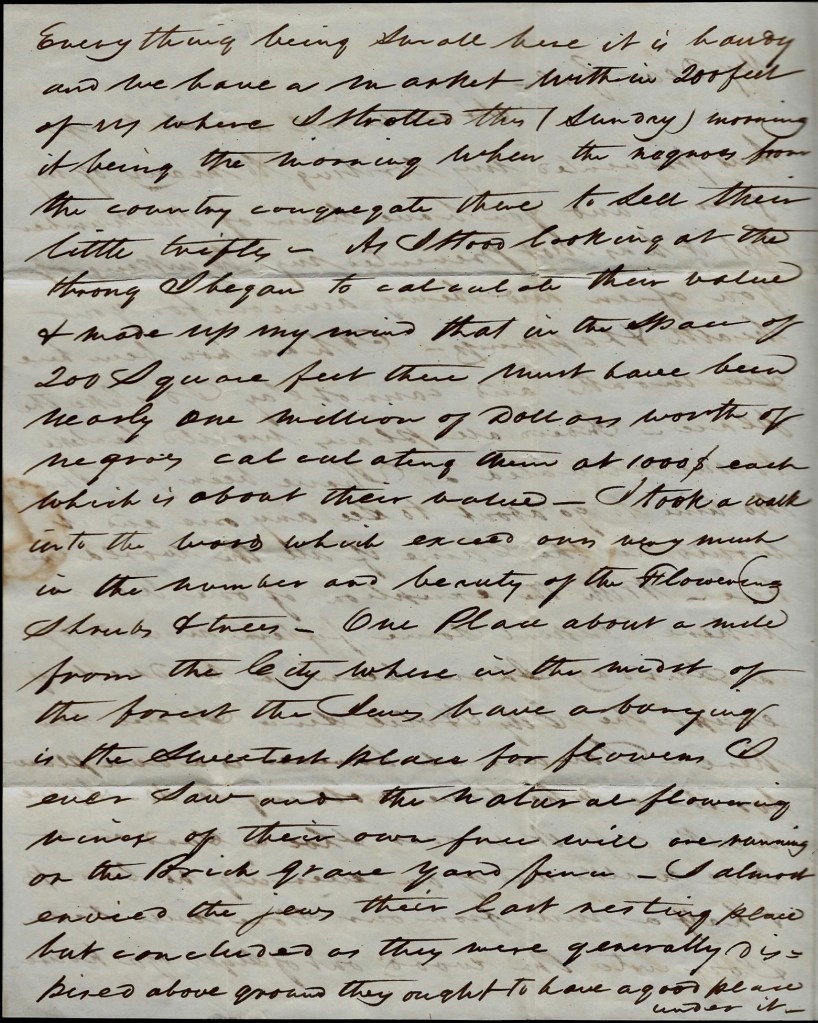 Everything being Small here it is handy
and we have a market within 200 feet
of us where I Strolled this (Sunday) morning
it being the morning when the negroes from
the country congregate there to Sell their
little trifles – As I Stood looking at the
throng I began to calculate their value
& made up my mind that in the Space of
200 Square feet there must have been
nearly One million of Dollars worth of
negroes calculating them at 1000$ each
which is about their value – I took a walk
into the woods which exceed ours very much
in the number and beauty of the Flowering
Shrubs & trees – One Place about a mile
from the City where in the midst of
the forest the Jews have a burying
is the Sweetest place for flowers I
ever Saw and the natural flowering
vines of their own free will are running
on the Brick grave yard fence – I almost
envied the jews their last resting place
but concluded as they were generally dis=
pised above ground they ought to have a good place
under it –